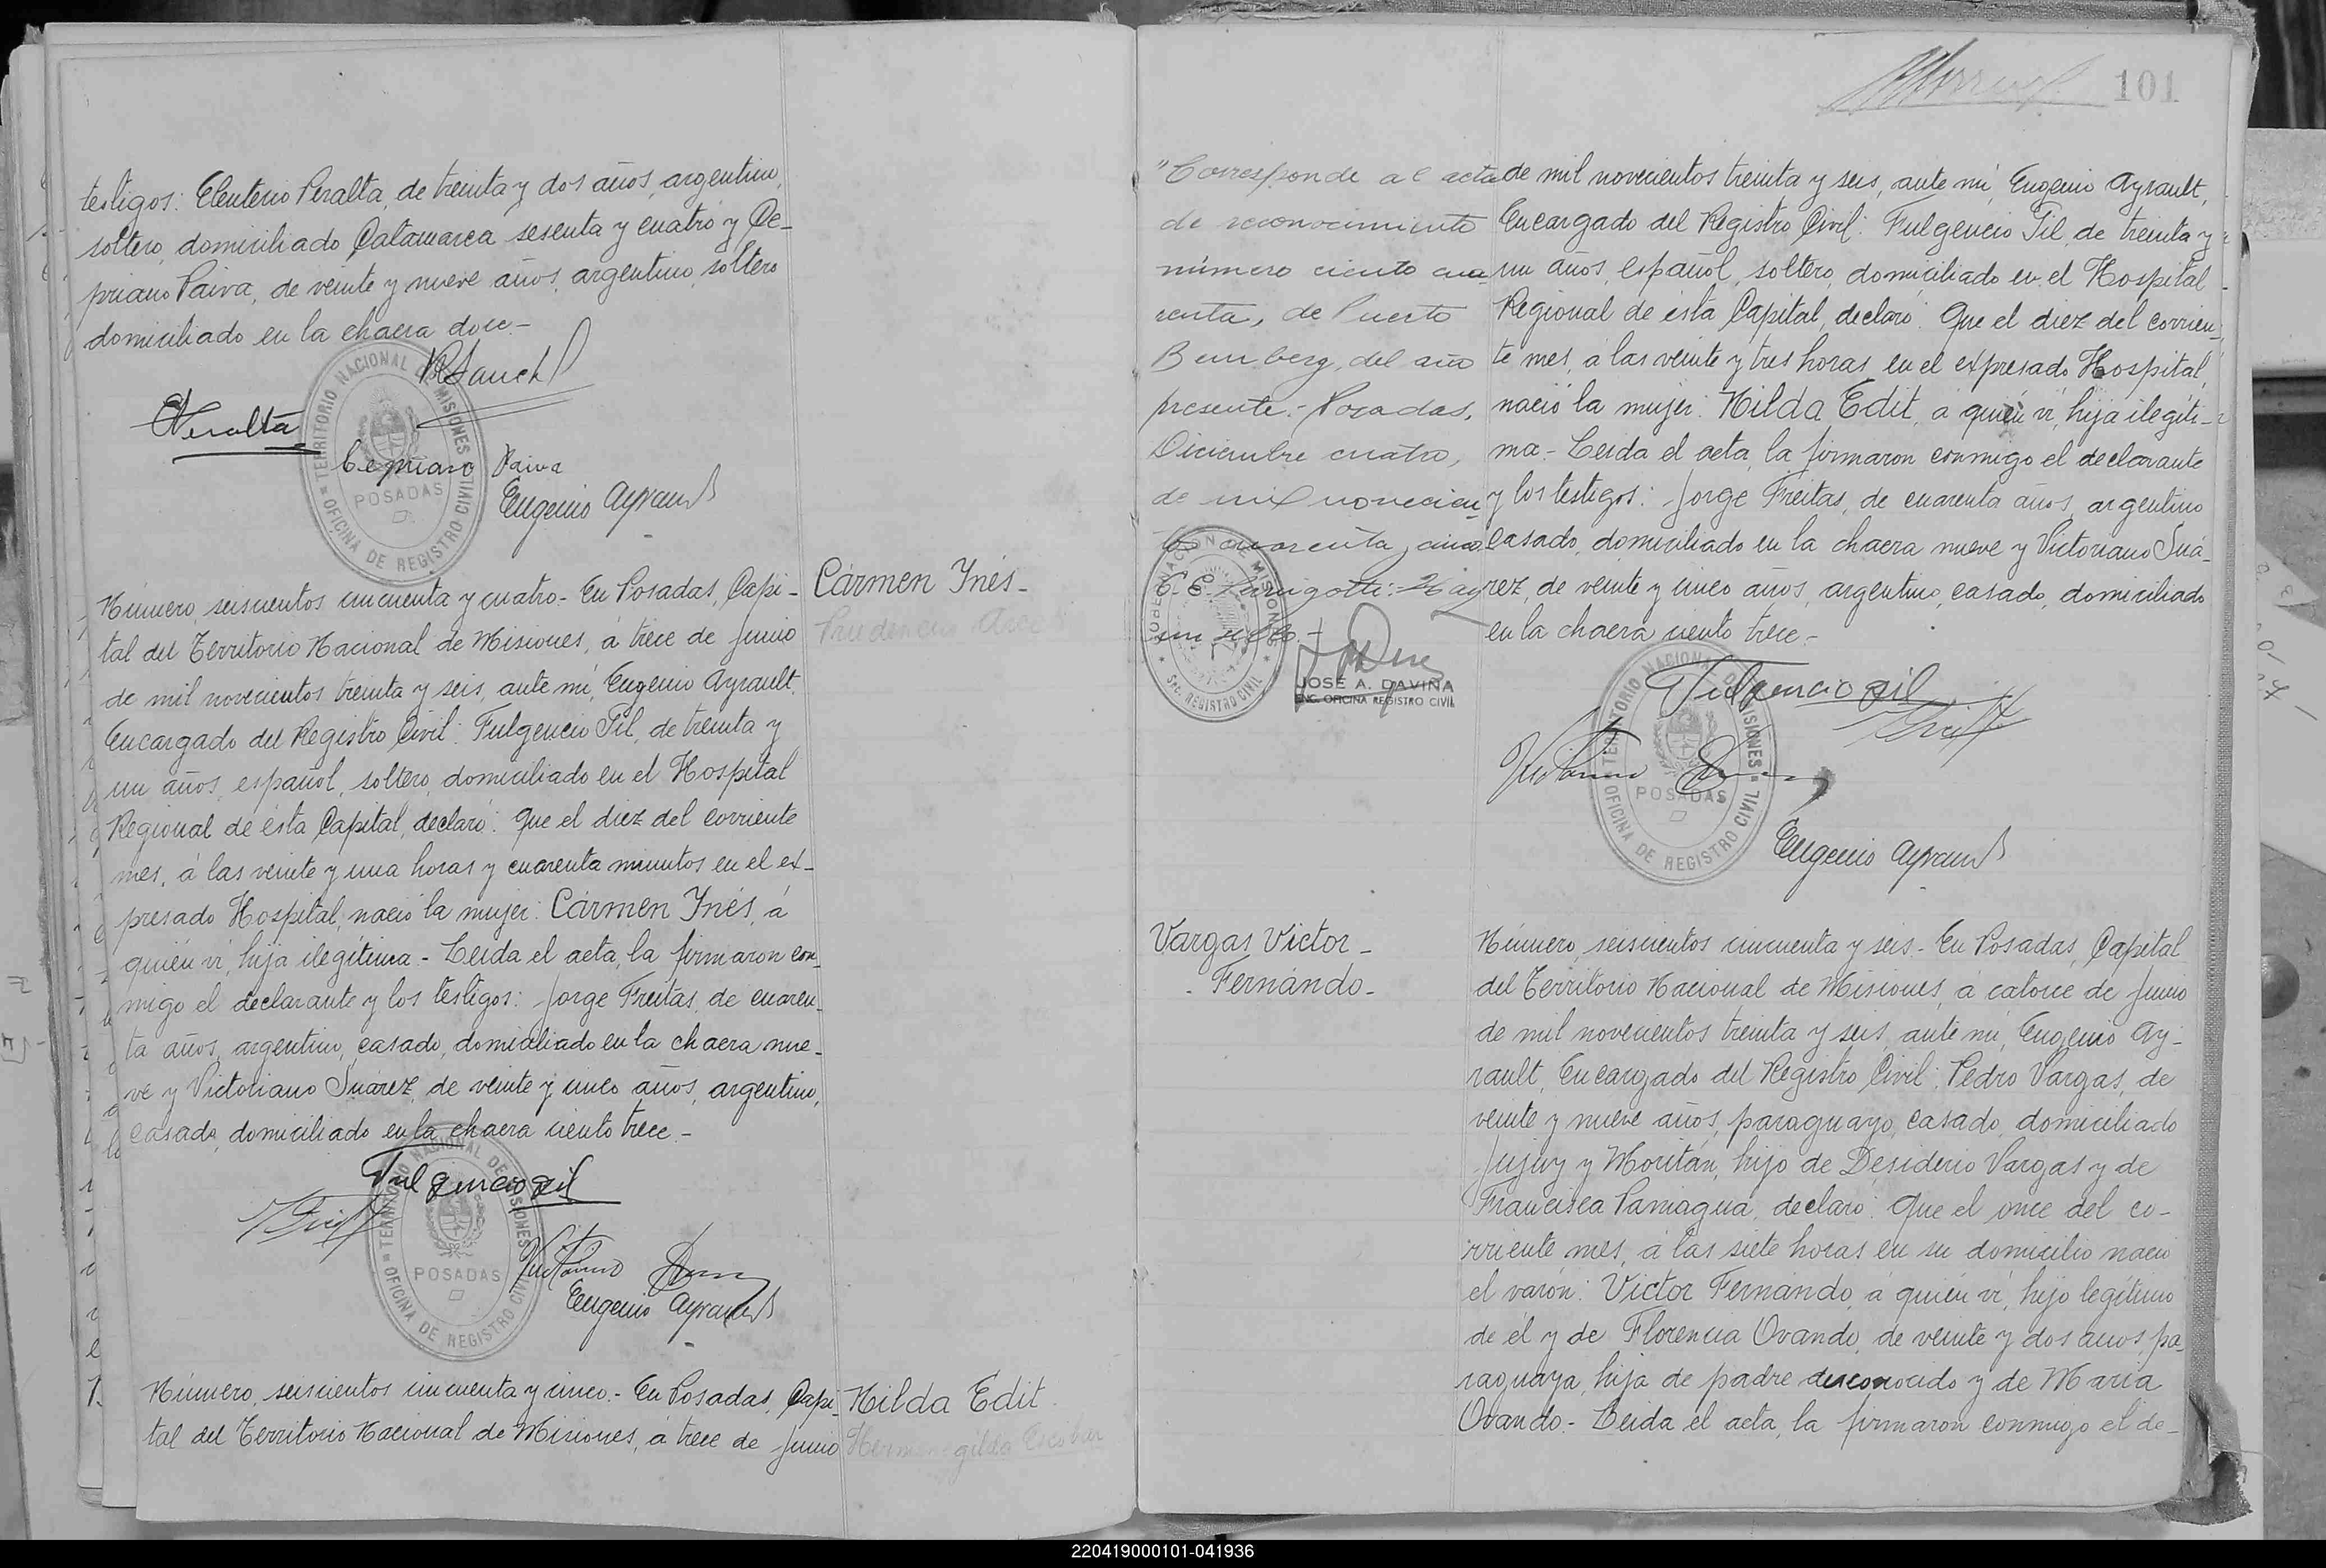 testigos: Eleuterio Peralta, de treinta y dos años, argentino,
soltero, domiciliado Catamarca sesenta y cuatro y Ce-
priano Paiva, de veinte y nueve años, argentino, soltero
domiciliado en la chacra doce.-
TERRITORIO NACIONAL DE MISIONES
OFICINA DE REGISTRO CIVIL
POSADAS
EPeralta
Cepriano Paiva
Eugenio Ayrault
Número, seiscientos cincuenta y cuatro.- En Posadas, Capi-
tal del Territorio Nacional de Misiones, á trece de Junio
de mil novecientos treinta y seis, ante mí, Eugenio Ayrault,
Encargado del Registro Civil: Fulgencio Gil, de treinta y
un años, español, soltero, domiciliado en el Hospital
Regional de ésta Capital, declaró: Que el diez del corriente
mes, á las veinte y una horas y cuarenta minutos en el ex-
presado Hospital, nació la mujer: Cármen Ynés, á
quién ví, hija ilegítima.- Leida el acta, la firmaron con-
migo el declarante y los testigos: Jorge Freitas, de cuaren-
ta años, argentino, casado, domiciliado en la chacra nue-
ve y Victoriano Suárez, de veinte y cinco años, argentino,
casado, domiciliado en la chacra ciento trece.-
Cármen Ynés-
Prudencia
Fulgencio gil
TERRITORIO NACIONAL DE MISIONES
OFICINA DE REGISTRO CIVIL
POSADAS
Eugenio Ayrault
Número, seiscientos cincuenta y cinco.- En Posadas, Capi-
tal del Territorio Nacional de Misiones, á trece de Junio
Hilda Edit
Hermenegilda Escobar
101
"Corresponde al acta
de reconocimiento
número ciento cua-
renta, de Puerto
Bemberg, del año
presente.- Posadas,
Diciembre cuatro,
de mil novecien-
tos cuarenta y cinco
GOBERNACION MISIONES
Sec. REGISTRO CIVIL
JOSE A. DAVIÑA
ENC. OFICINA REGISTRO CIVIL
de mil novecientos treinta y seis, ante mí, Eugenio Ayrault,
Encargado del Registro Civil: Fulgencio Gil, de treinta y
un años, español, soltero, domiciliado en el Hospital
Regional de esta Capital, declaró: Que el diez del corrien-
te mes, á las veinte y tres horas en el expresado Hospital,
nació la mujer: Hilda Edit, á quién ví, hija ilegíti-
ma.- Leida el acta, la firmaron conmigo el declarante
y los testigos: Jorge Freitas, de cuarenta años, argentino
casado, domiciliado en la chacra nueve y Victoriano Suá-
rez, de veinte y cinco años, argentino, casado, domiciliado
en la chacra ciento trece.-
Fulgencio gil
TERRITORIO NACIONAL DE MISIONES
OFICINA DE REGISTRO CIVIL
POSADAS
Eugenio Ayrault
Vargas Victor-
-Fernándo-
Número, seiscientos cincuenta y seis.- En Posadas, Capital
del Territorio Nacional de Misiones, á catorce de Junio
de mil novecientos treinta y seis, ante mí, Eugenio Ay-
rault, Encargado del Registro Civil: Pedro Vargas, de
veinte y nueve años, paraguayo, casado, domiciliado
Jujuy y Moritán, hijo de Desiderio Vargas y de
Francisca Paniagua, declaró: Que el once del co-
rriente mes, á las siete horas en su domicilio nació
el varón: Victor Fernándo, á quién ví, hijo legítimo
de él y de Florencia Ovando, de veinte y dos años, pa-
raguaya, hija de padre desconocido y de Maria
Ovando.- Leida el acta, la firmaron conmigo el de-
220419000101-041936